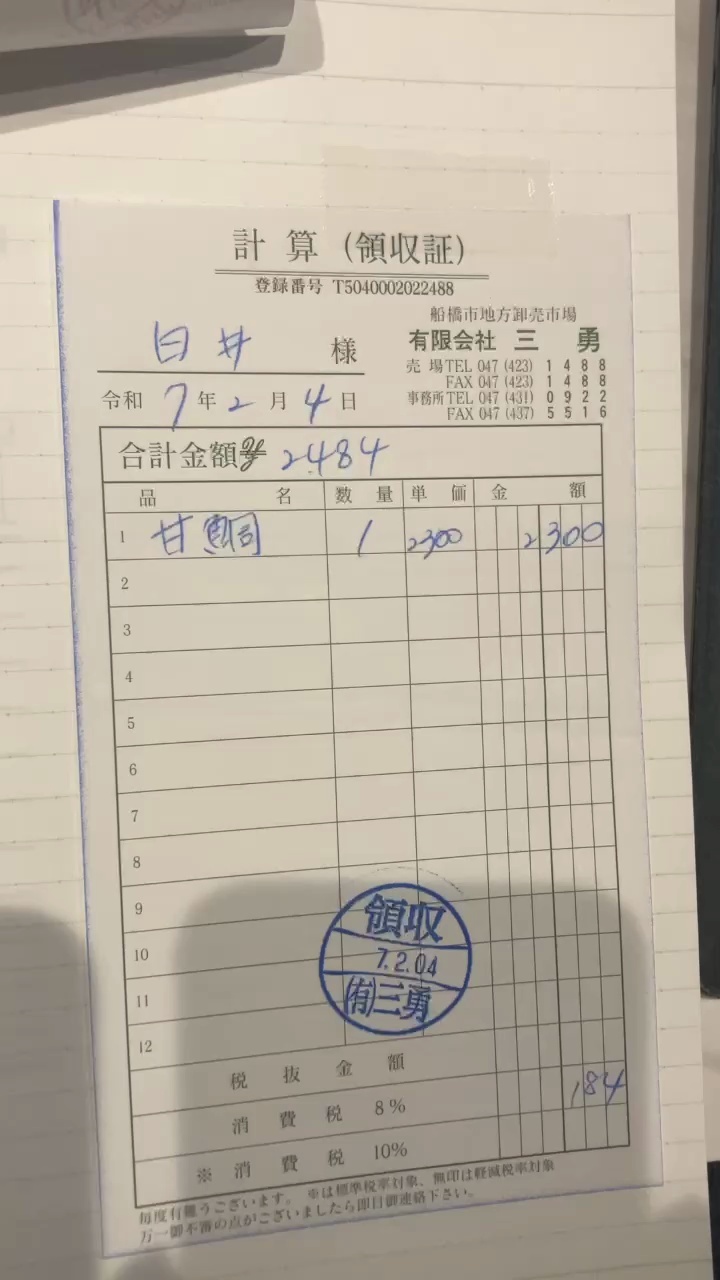 計算(領収証)
登録番号 T5040002022488
船橋市地方卸売市場
有限会社 三勇
売場TEL 047 (423) 1488
FAX 047 (423) 1488
事務所TEL 047 (431) 0922
FAX 047 (437) 5516
白井 様
令和 7年 2月 4日
合計金額 ¥2484
品名 数量 単価 金額
1 甘鯛 1 2300 2300
2
3
4
5
6
7
8
9
10
11
12
領収
7.2.04
(有)三勇
税抜金額
消費税 8% 184
※消費税 10%
毎度有難うございます。 ※は標準税率対象、無印は軽減税率対象
万一御不審の点がございましたら即日御連絡下さい。